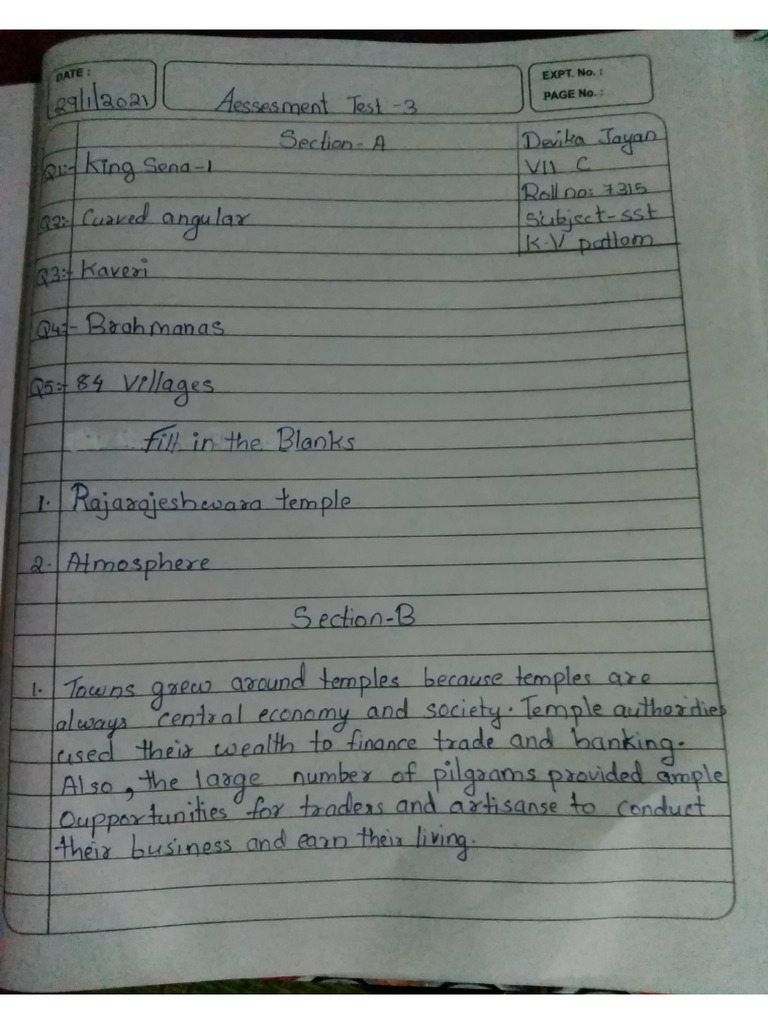 DATE :
29/1/2021
Aessesment Test -3
EXPT. No. :
PAGE No. :
Section-A
Devika Jayan
VII C
Roll no: 7315
Subject-sst
K.V pattom
Q1:- King Sena-1
Q2:- Curved angular
Q3:- Kaveri
Q4:- Brahmanas
Q5:- 84 Villages
Fill in the Blanks
1. Rajarajeshwara temple
2. Atmosphere
Section-B
1. Towns grew around temples because temples are
always central economy and society. Temple authorities
used their wealth to finance trade and banking.
Also, the large number of pilgrams provided ample
Oupportunities for traders and artisanse to conduct
their business and earn their living.